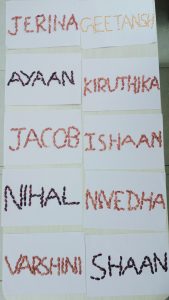 JERINA GEETANSH
AYAAN KIRUTHIKA
JACOB ISHAAN
NIHAL NIVEDHA
VARSHINI SHAAN